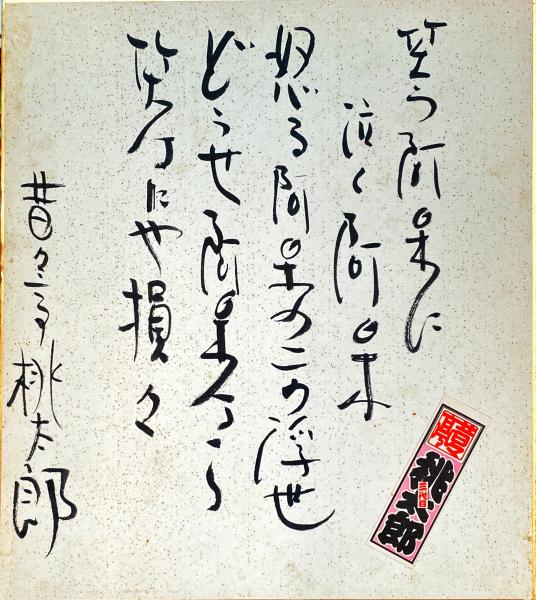 笑う阿呆に
泣く阿呆
怒る阿呆のこの浮世
どうせ阿呆なら
笑わにや損々
昔々亭桃太郎
桃太郎
三代目